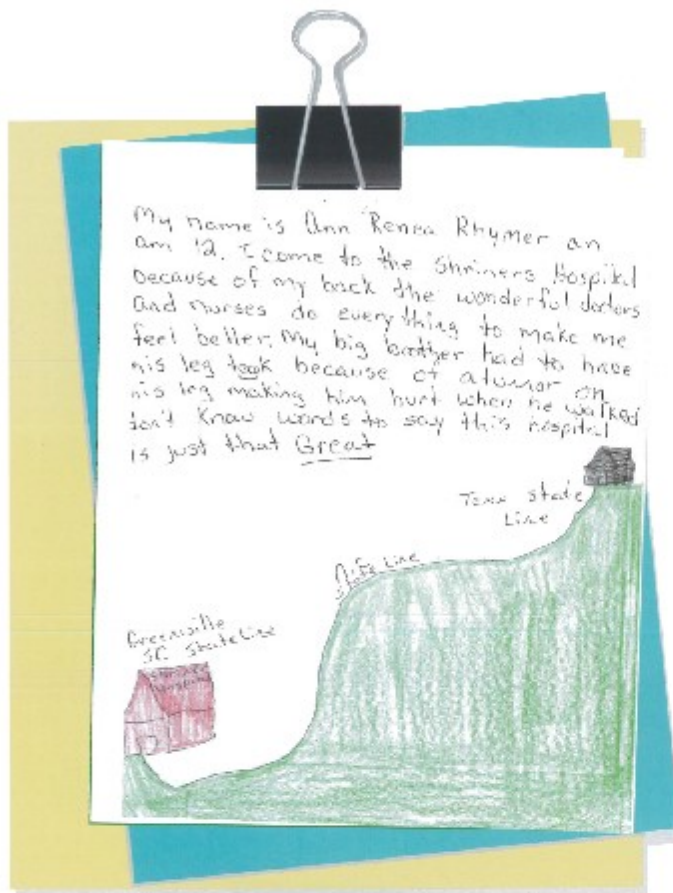 My name is Ann Renea Rhymer an
am 12. I come to the Shriners Hospital
because of my back the wonderful doctors
and nurses do everything to make me
feel better. My big brother had to have
his leg took because of a tumor on
his leg making him hurt when he walked
don't know words to say this hospital
is just that Great
Tenn State
Line
State Line
Greenville
SC State Line
Shriners
Hospital